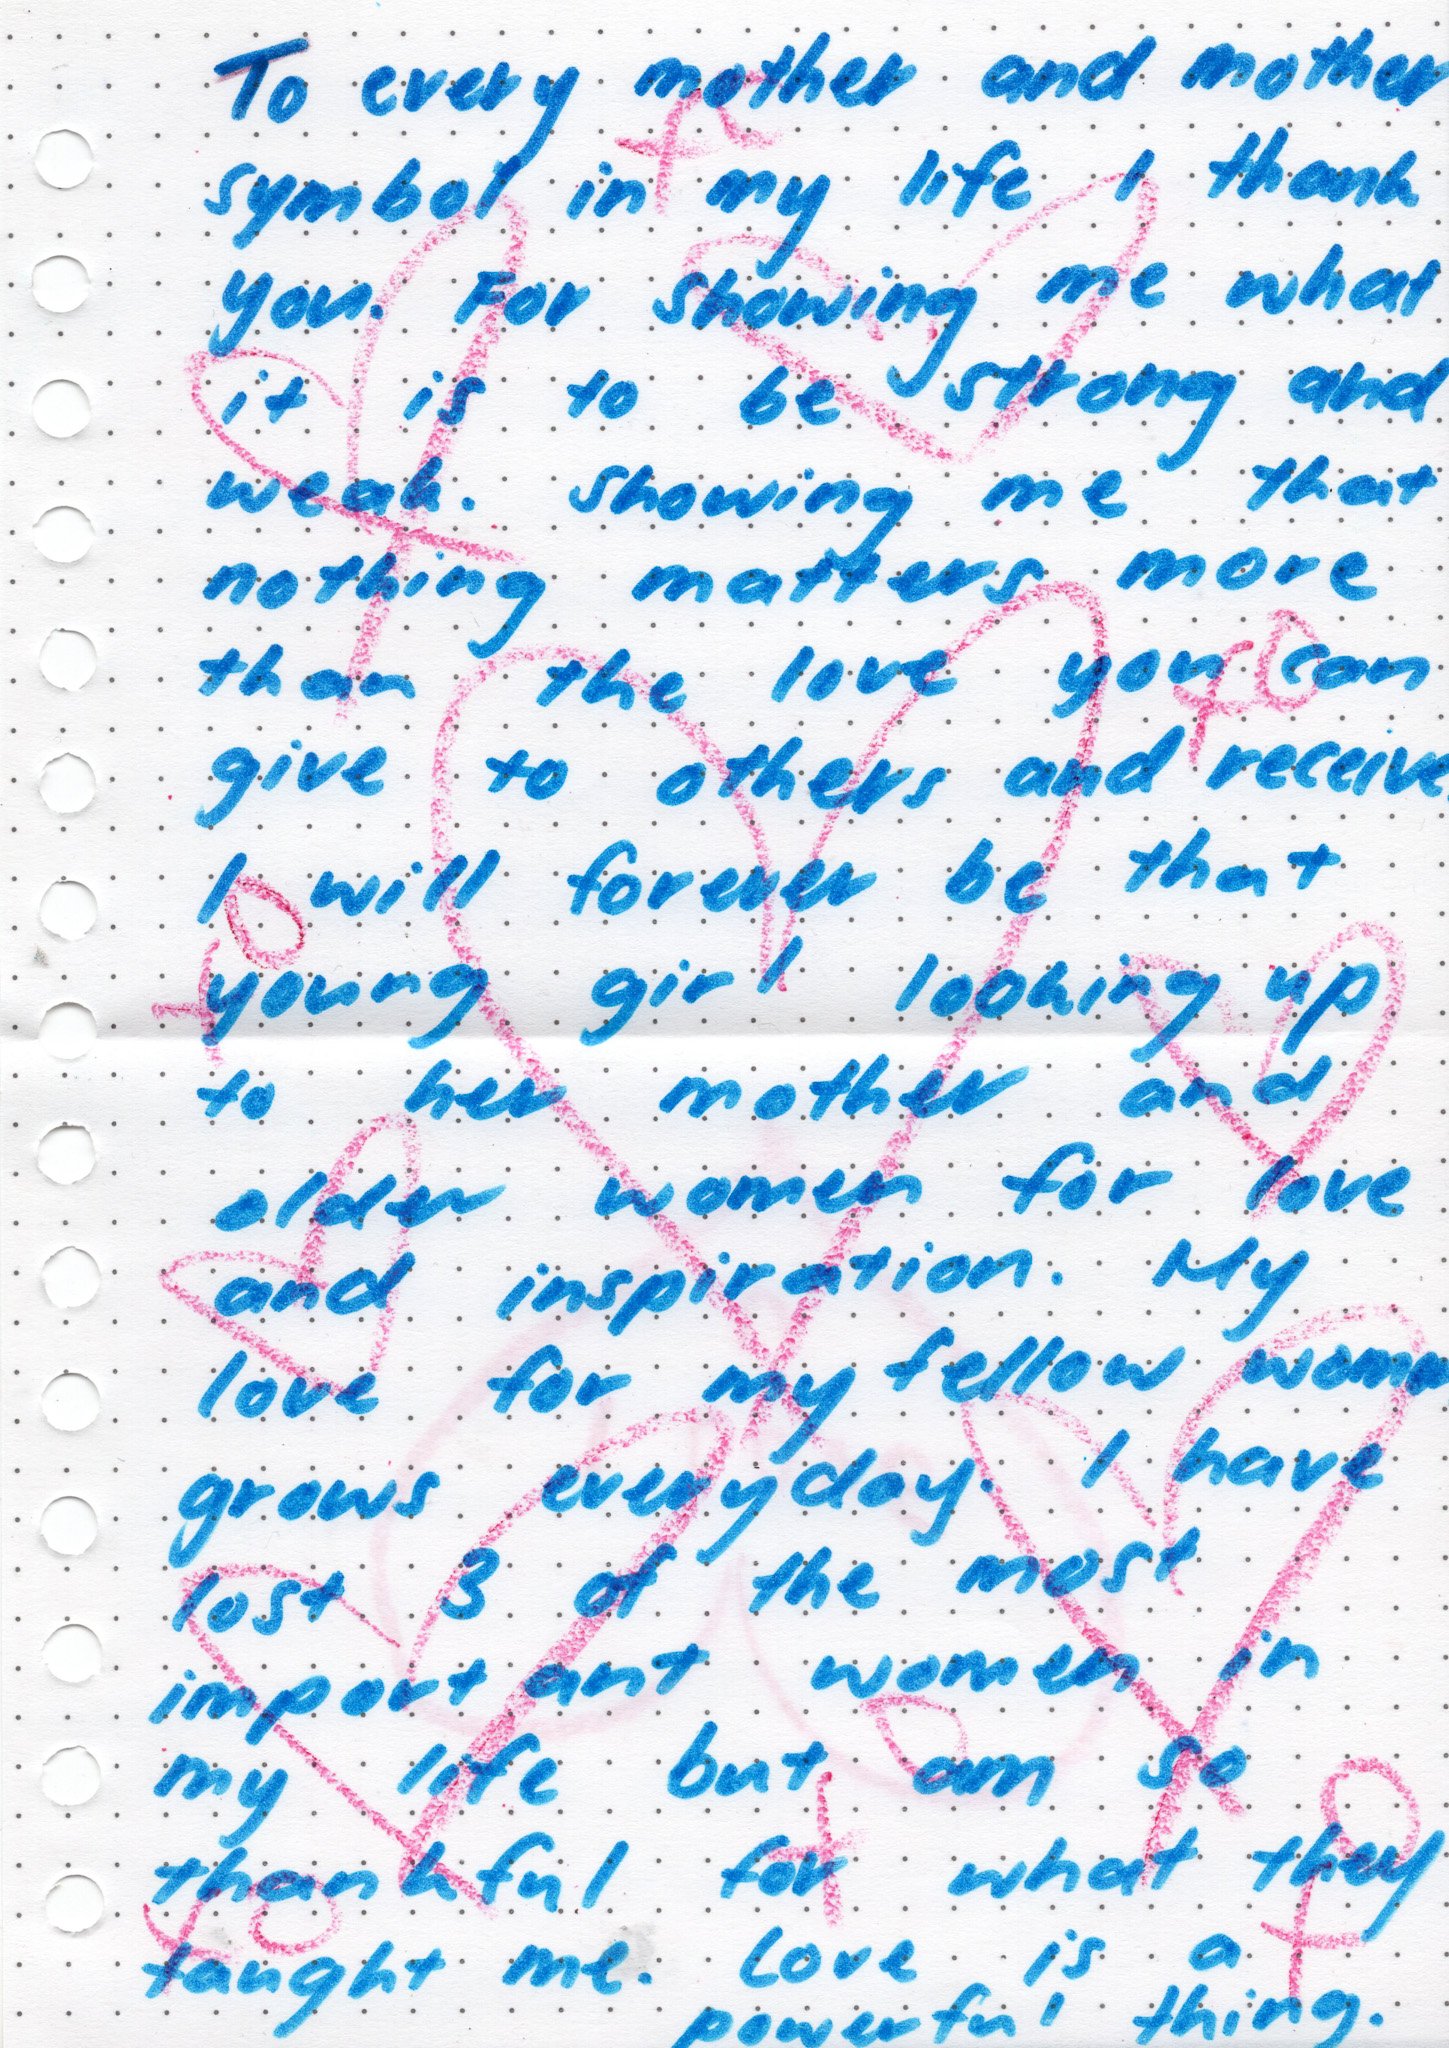 To every mother and mother
symbol in my life I thank
you. For showing me what
it is to be strong and
weak. showing me that
nothing matters more
than the love you can
give to others and receive.
I will forever be that
young girl looking up
to her mother and
older women for love
and inspiration. My
love for my fellow women
grows everyday. I have
lost 3 of the most
important women in
my life but am so
thankful for what they
taught me. Love is a
powerful thing.